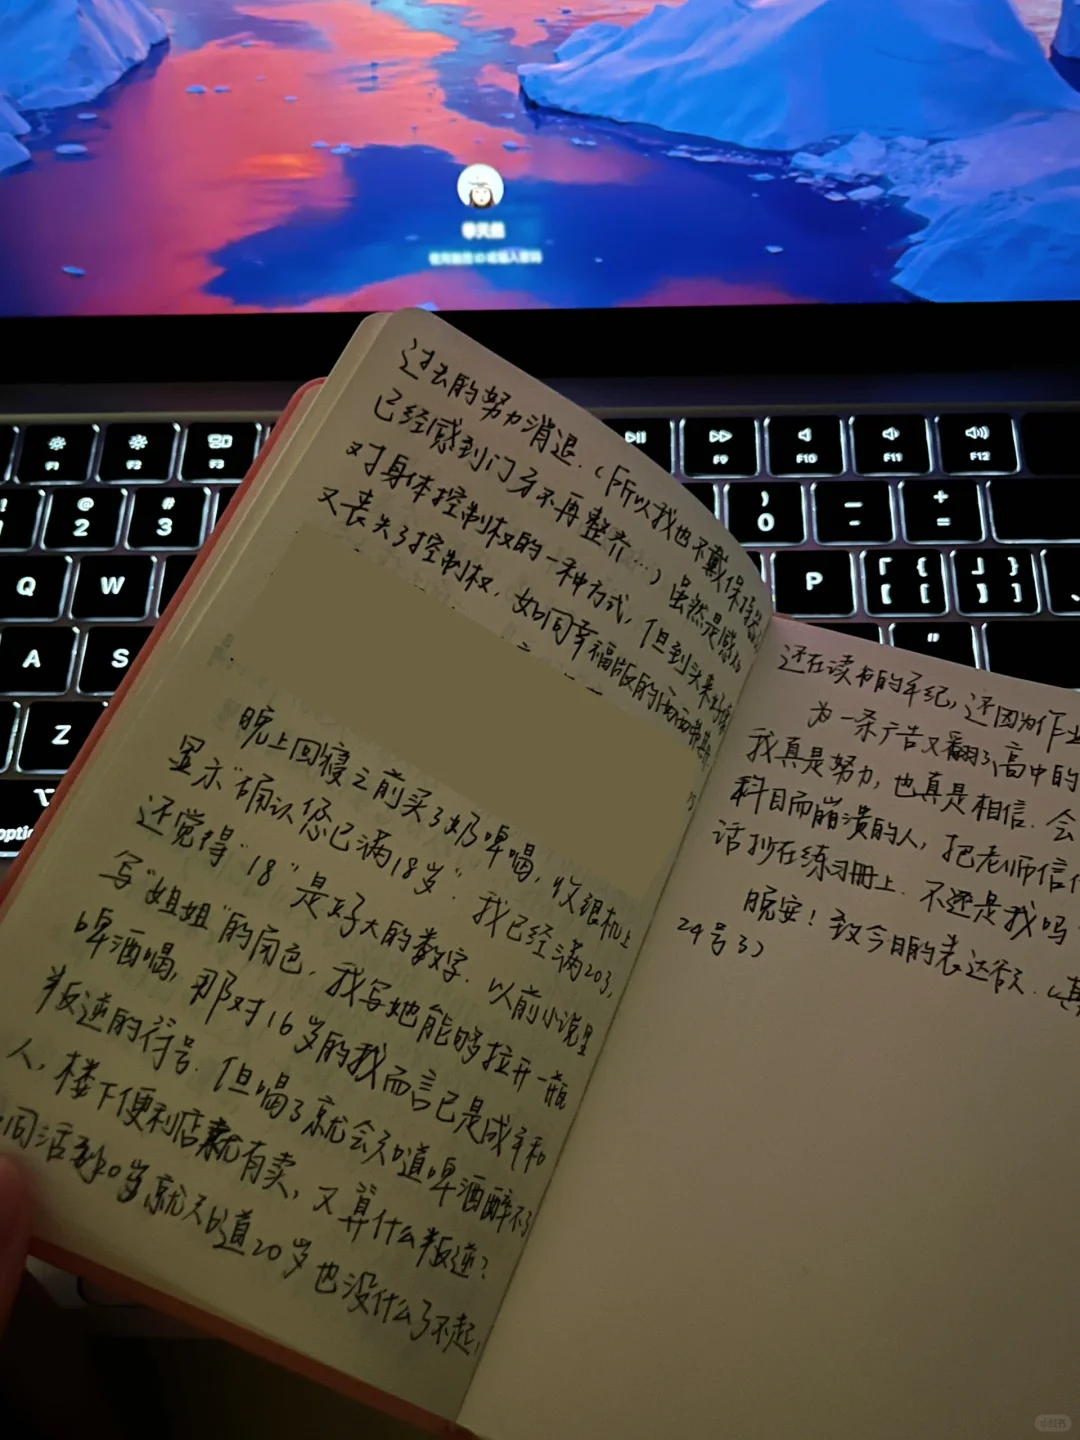 过去的努力消退.（所以我也不戴保持器
已经感到门牙不再整齐…）虽然是感
对身体控制权的一种方式,但到头来
又丧失了控制权.如同幸福版的西西弗
晚上回寝之前买了奶啤喝,收银机上
显示“确认您已满18岁”.我已经满20了,
还觉得“18”是好大的数字.以前小说里
写“姐姐”的角色,我写她能够拉开一瓶
啤酒喝,那对16岁的我而言已是成年和
叛逆的符号.但喝了就会知道啤酒醉不了
人,楼下便利店就有卖,又算什么叛逆?
同活到20岁就知道20岁也没什么了不起,
还在读书的年纪,还因为作业
为一条广告又翻了高中的
我真是努力,也真是相信.会
科目而崩溃的人,把老师信
话抄在练习册上.不还是我吗
晚安!致今日的表达欲.（真
24号了）
F1
F2
F3
F9
F10
F11
F12
@
2
#
3
)
0
—
-
+
=
Q
W
P
「 {
【 [
」 }
】 ]
A
S
Z
"
小红书